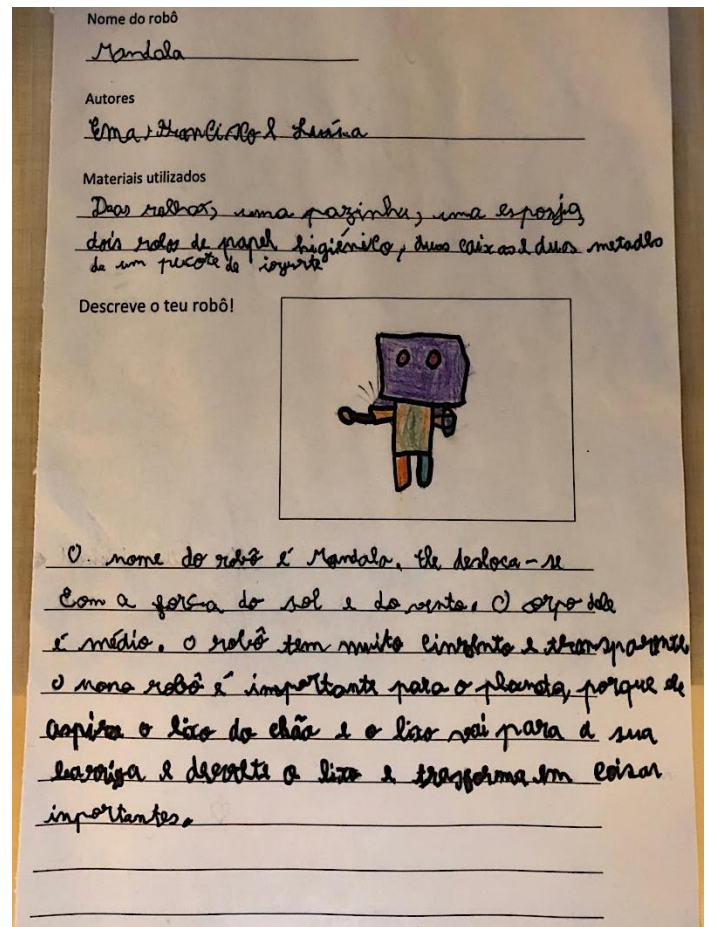 Nome do robô
Mandala
Autores
Ema, Francisco e Luána
Materiais utilizados
Duas rolhas, uma pazinha, uma esponja,
dois rolos de papel higiénico, duas caixas e duas metades
de um pacote de iogurte
Descreve o teu robô!
O nome do robô é Mandala. Ele desloca-se
com a força do sol e do vento. O corpo dele
é médio. O robô tem muito cinzento e transparente
O noso robô é importante para o planeta, porque ele
aspira o lixo do chão e o lixo vai para a sua
barriga e derrete o lixo e trasforma em coisas
inportantes.